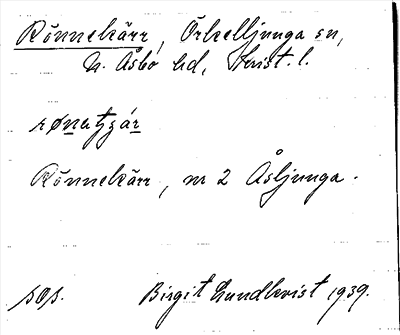 Rönnekärr, Örkelljunga sn,
N. Åsbo hd, Krist. l.
Rönnekärr, nr 2 Åsljunga.
sos. Birgit Lundkvist 1939.